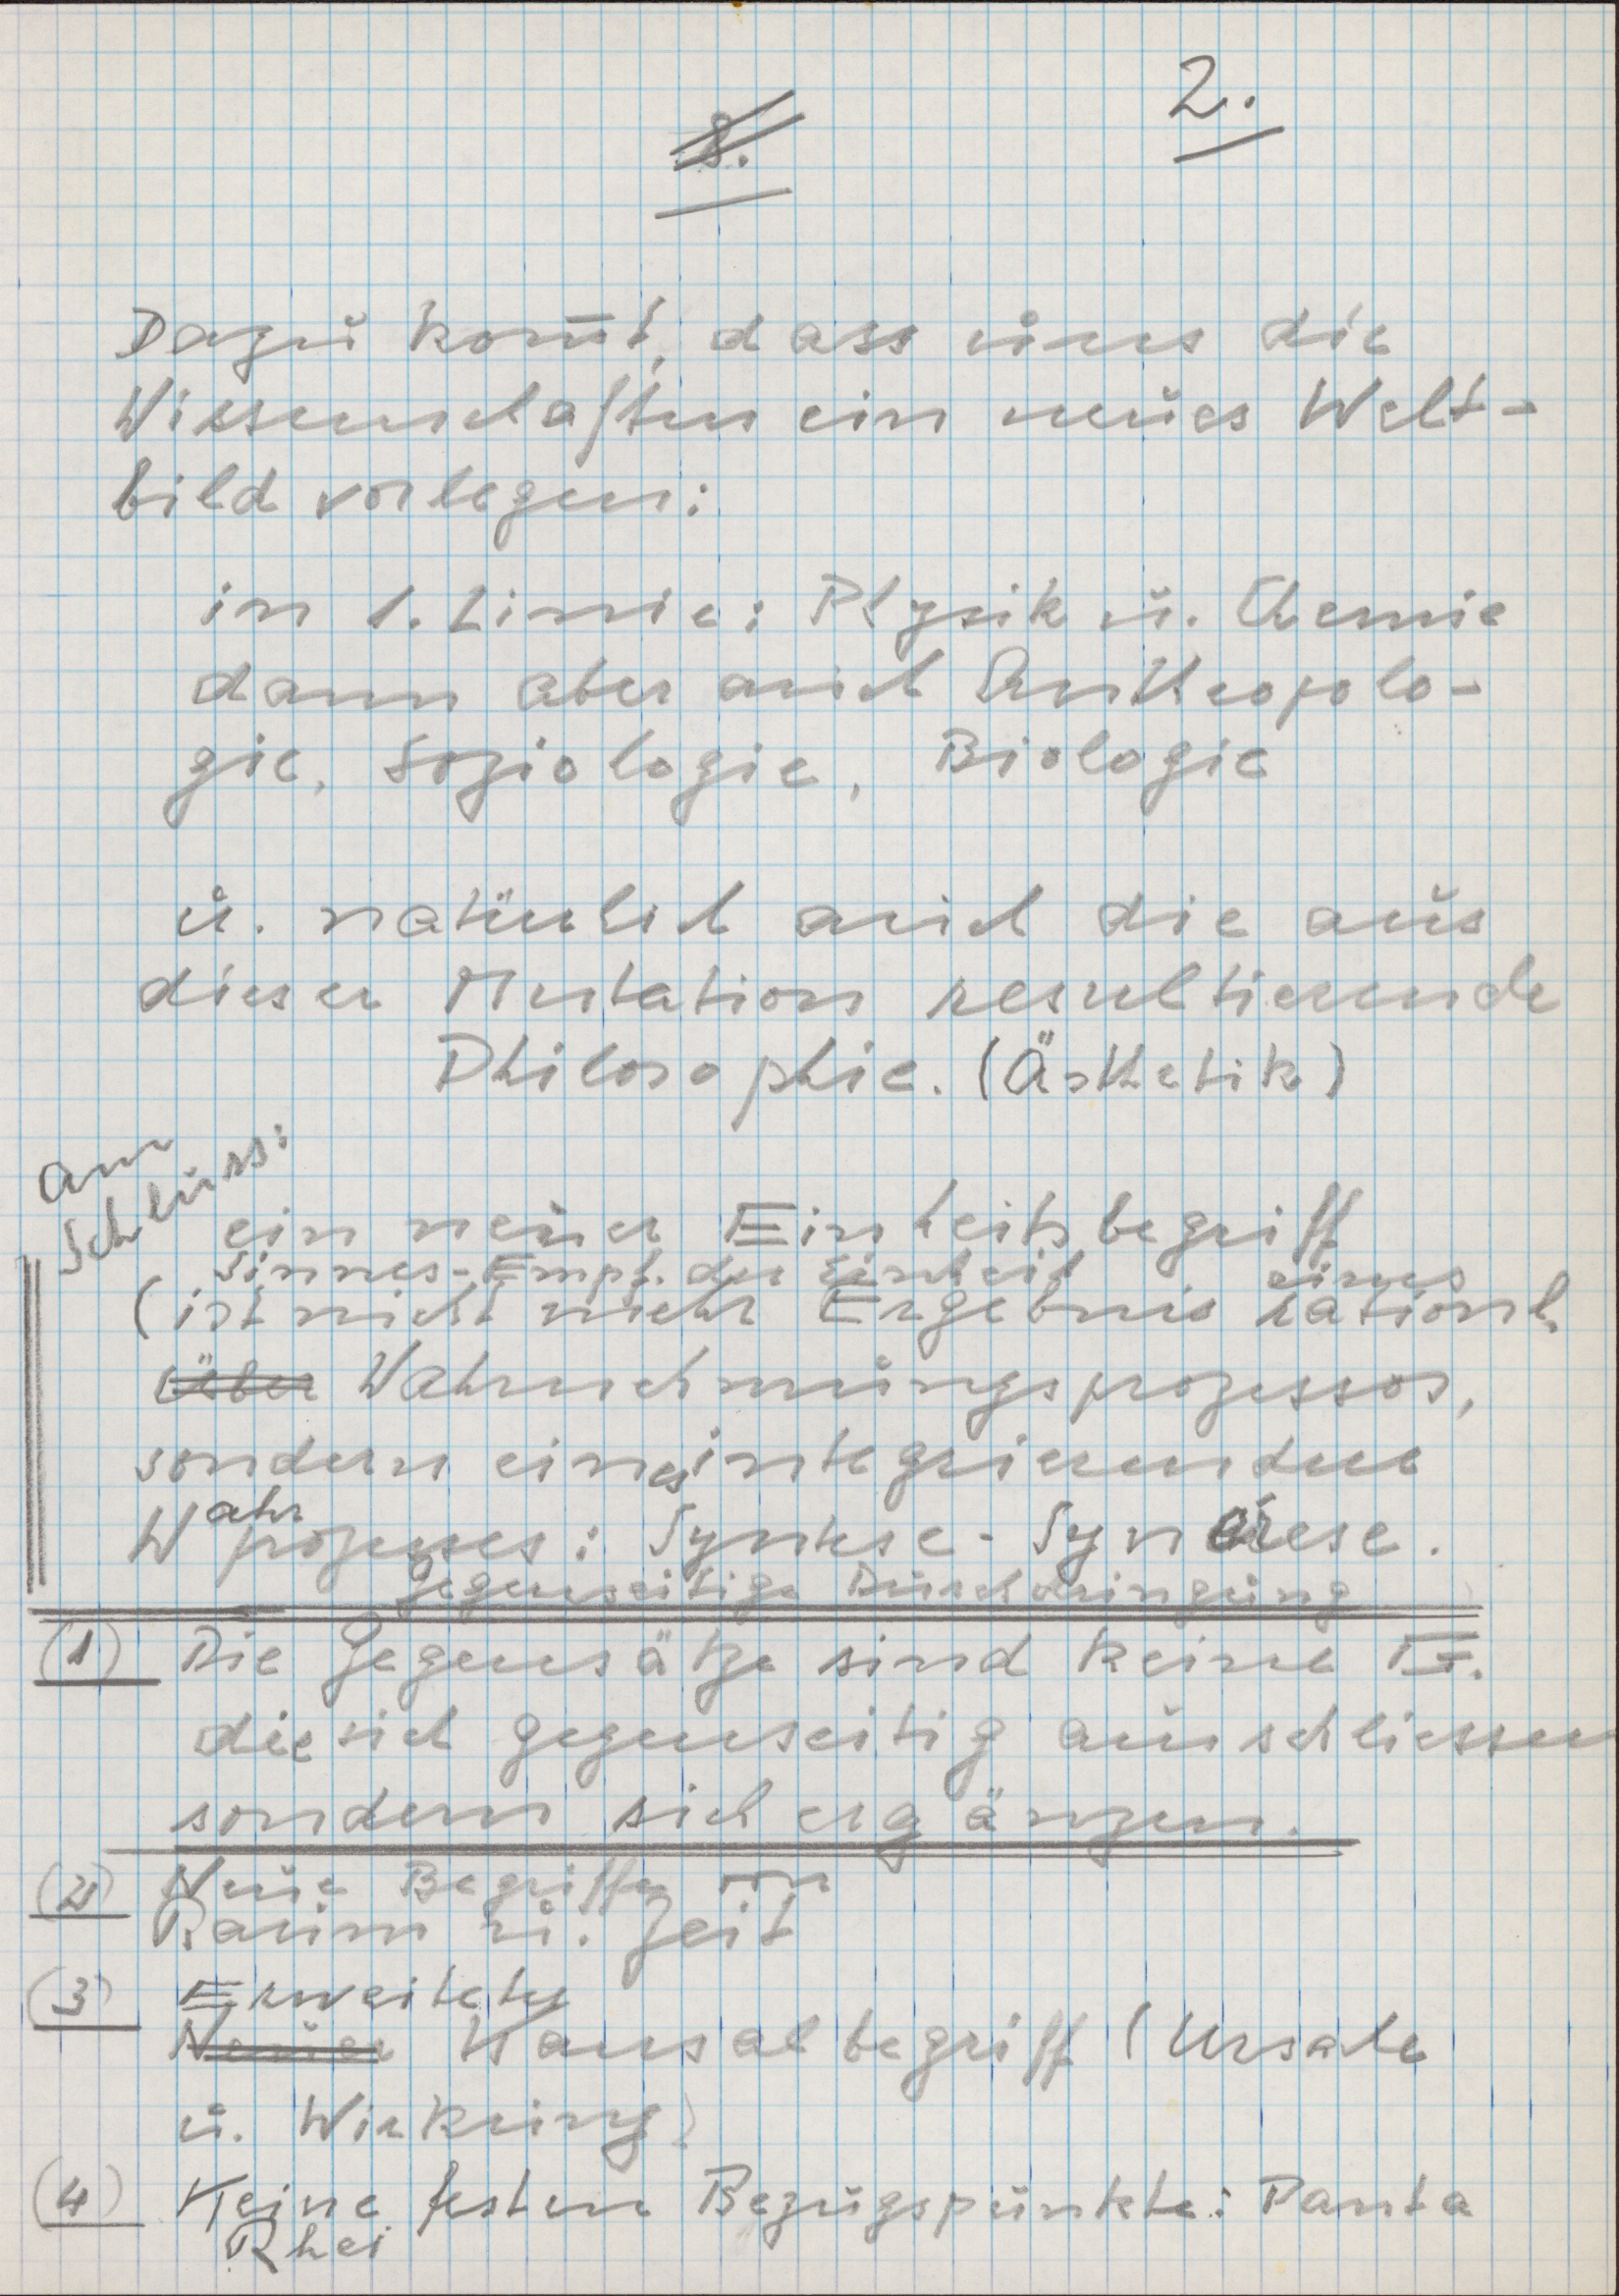 8.
2.
Dazu kom̄t, dass uns die
Wissenschaften ein neues Welt-
bild vorlegen:
in 1. Linie: Physik u. Chemie
dann aber auch Anthropolo-
gie, Soziologie, Biologie
u. natürlich auch die aus
dieser Mutation resultierende
Philosophie. (Ästhetik)
am
Schluss:
ein neuer Einheitsbegriff
Sinnes-Empf. der Einheit eines
(ist nicht mehr Ergebnis rationl.
Über Wahrnehmungsprozesses,
sondern eines integrierenden
Wahrprozesses: Synthese - Synärese.
Gegenseitige Durchdringung
(1) Die Gegensätze sind keine G.
die sich gegenseitig ausschliessen
sondern sich ergänzen.
(2) Neue Begriffe von
Raum u. Zeit
(3) Erweiterter
Neuer Kausalbegriff (Ursache
u. Wirkung)
(4) Keine festen Bezugspunkte: Panta
Rhei